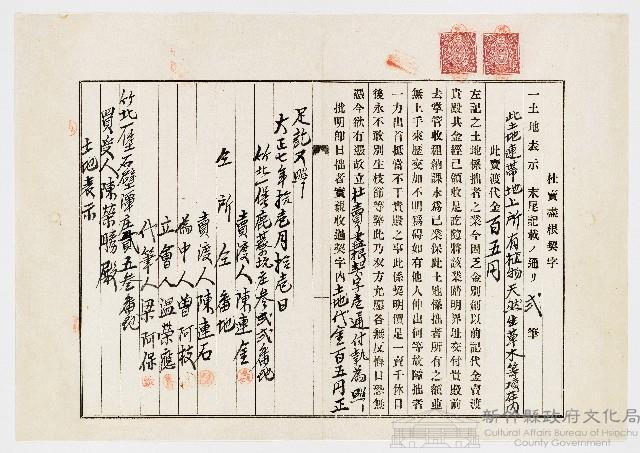 杜賣盡根契字
一土地表示 末尾記載ノ通リ 弐 筆
此土地連帶地上所有植物天然生草木等項在內
此賣渡代金 百五円
左記之土地係拙者之業今因乏金別創以前記代金賣渡
貴殿其金經已領收足訖隨將該業踏明界址交付貴殿前
去掌管收租納課永為己業保此土地係拙者所有之額並
無上手來歷交加不明為碍如有他人伸出何等故障拙者
一力出首抵當不干貴殿之事此係契明價足一賣千休日
後永不敢別生枝節等弊此乃双方允愿各無反悔口恐無
憑今欲有憑故立杜賣盡根契字壱通付執為照
批明即日拙者實親收過契字內土地代金百五円正
足訖又照
大正七年拾壱月拾壱日
竹北一堡鹿藔坑庄叁弐弐番地
賣渡人 陳連金
仝所仝番地
賣渡人 陳連石
為中人 曾阿枝
立會人 溫榮應
代筆人 梁阿保
竹北一堡石壁潭庄貳五叁番地
買受人 陳榮賜 殿
土地表示
新竹縣政府文化局
Cultural Affairs Bureau of Hsinchu
County Government